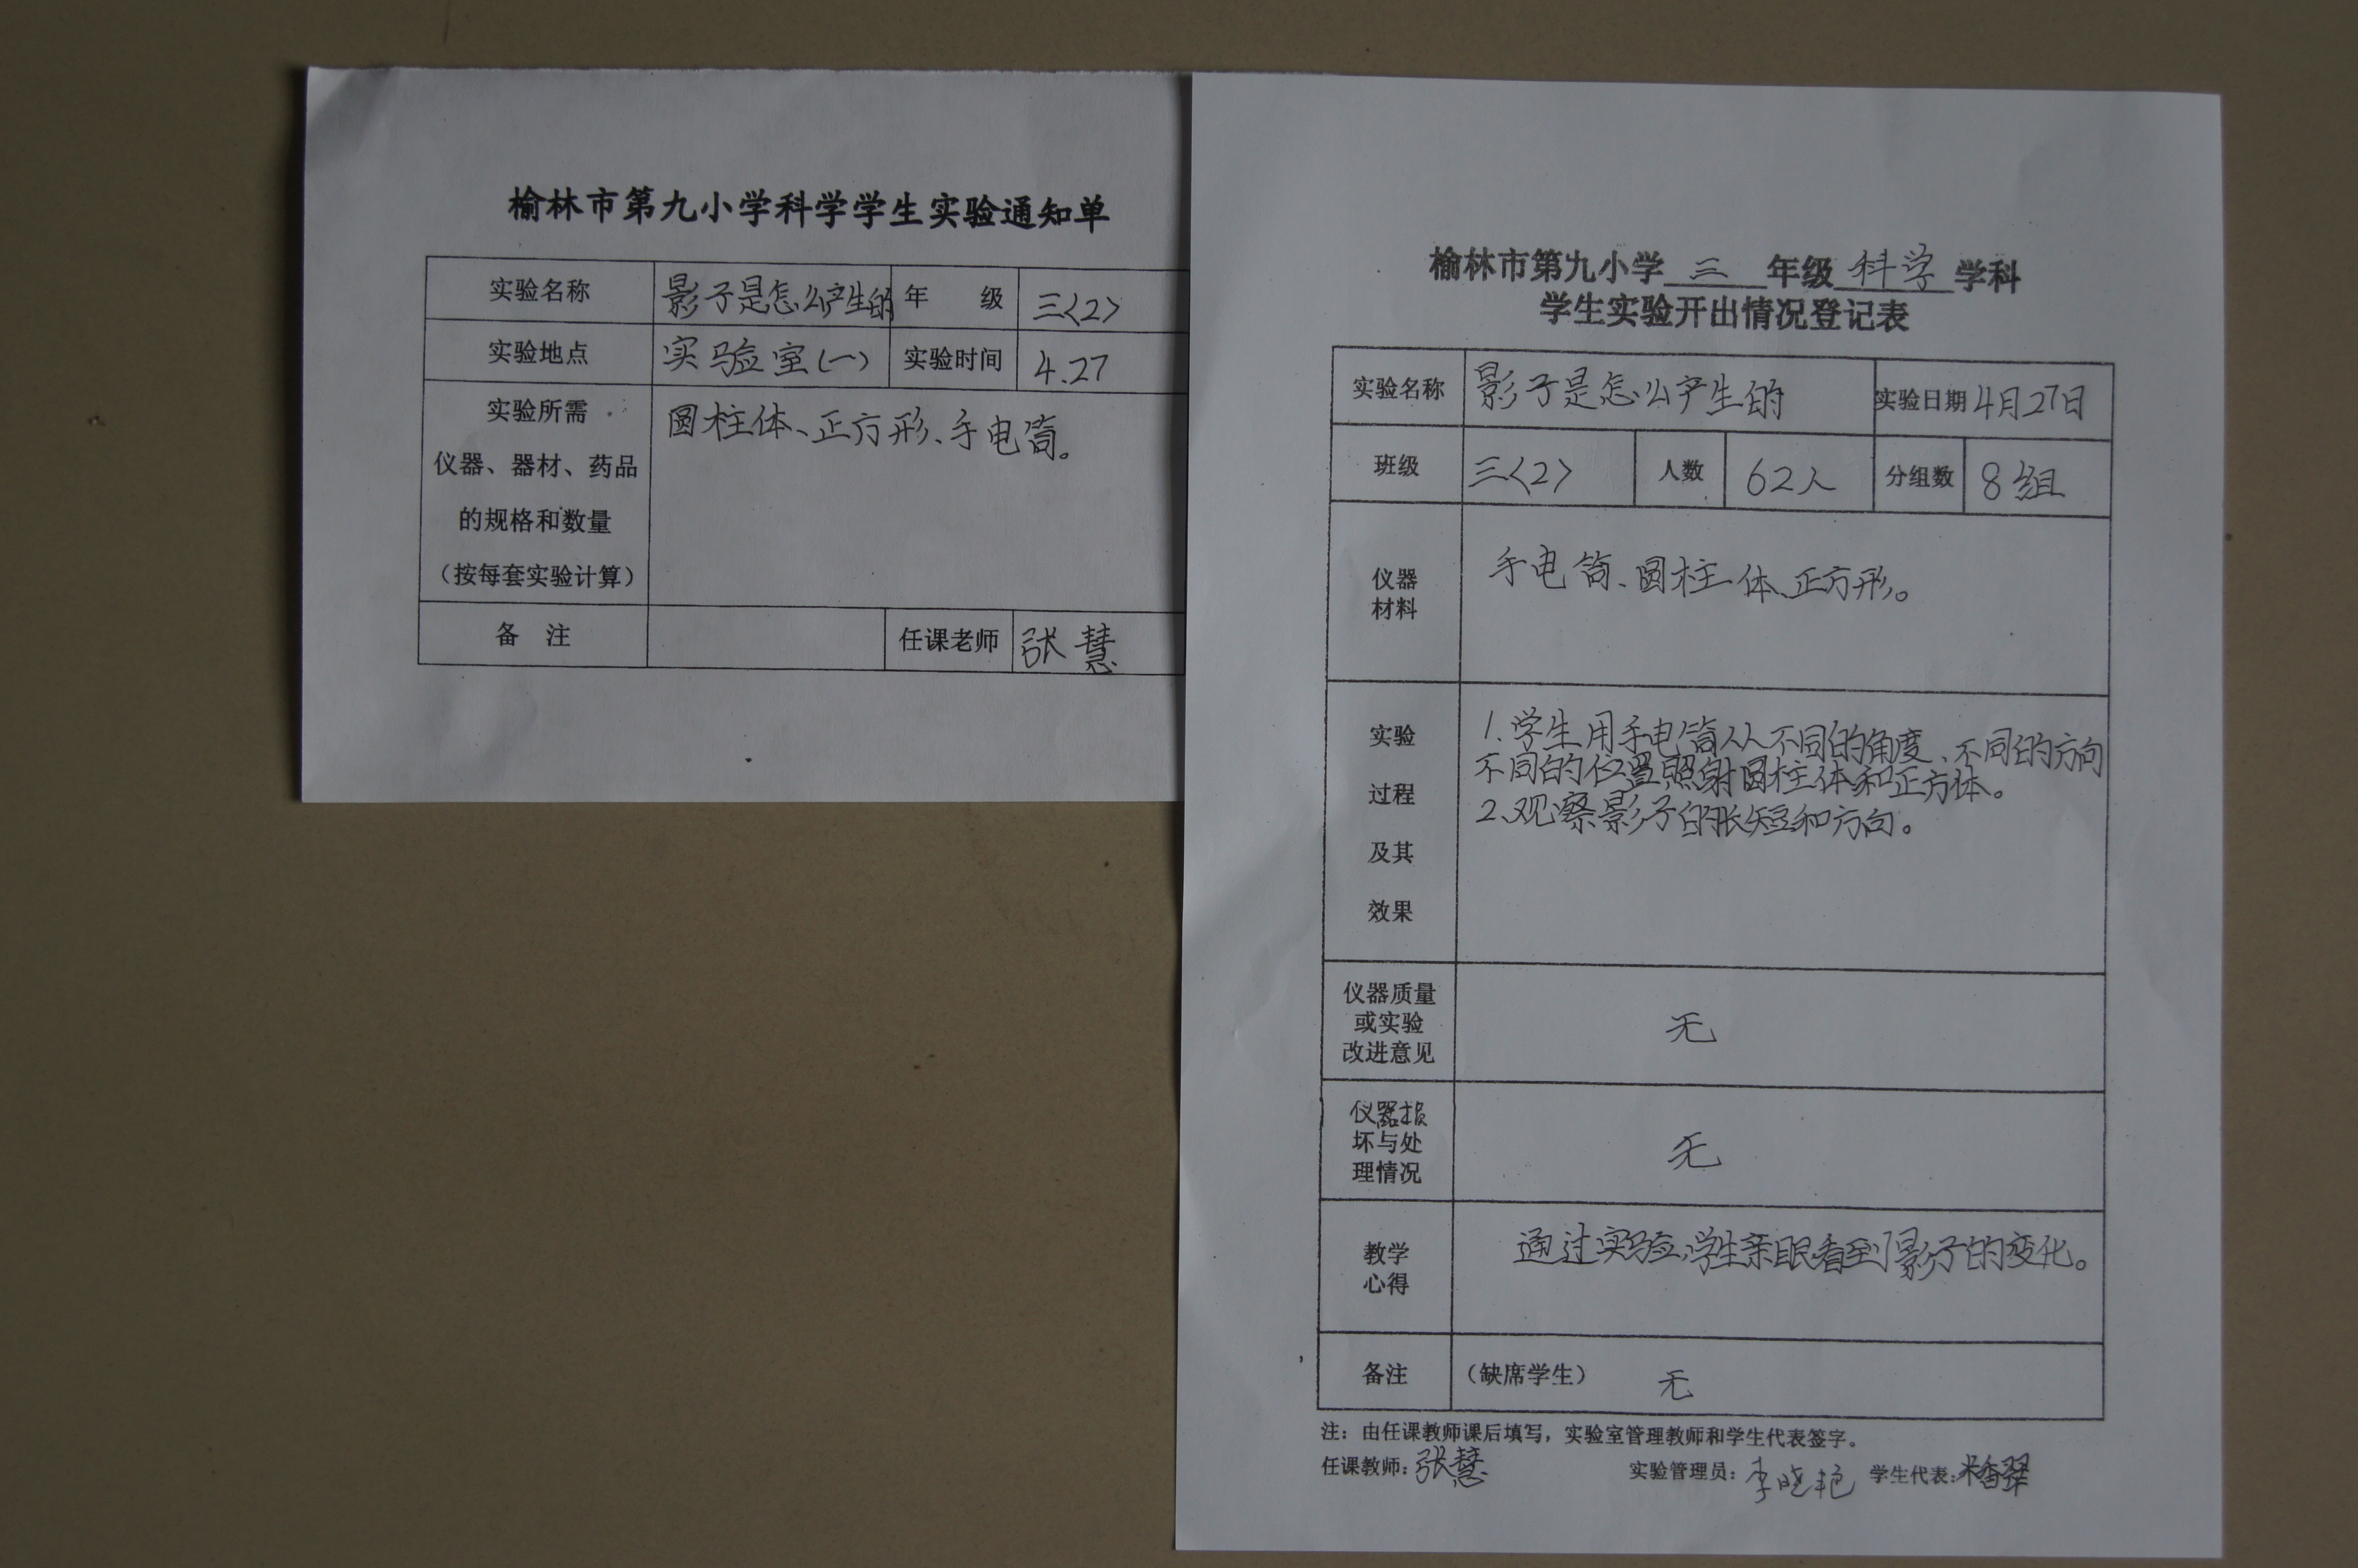 榆林市第九小学科学学生实验通知单
实验名称 影子是怎么产生的 年 级 三〈2〉
实验地点 实验室(一) 实验时间 4.27
实验所需
仪器、器材、药品
的规格和数量
（按每套实验计算）
圆柱体、正方形、手电筒。
备 注 任课老师 张慧
榆林市第九小学 三 年级 科学 学科
学生实验开出情况登记表
实验名称 影子是怎么产生的 实验日期 4月27日
班级 三〈2〉 人数 62人 分组数 8组
仪器
材料
手电筒、圆柱体、正方形。
实验
过程
及其
效果
1.学生用手电筒从不同的角度、不同的方向
不同的位置照射圆柱体和正方体。
2、观察影子的长短和方向。
仪器质量
或实验
改进意见
无
仪器损
坏与处
理情况
无
教学
心得
通过实验,学生亲眼看到影子的变化。
备注 （缺席学生） 无
注：由任课教师课后填写，实验室管理教师和学生代表签字。
任课教师：张慧 实验管理员：李晓艳 学生代表：